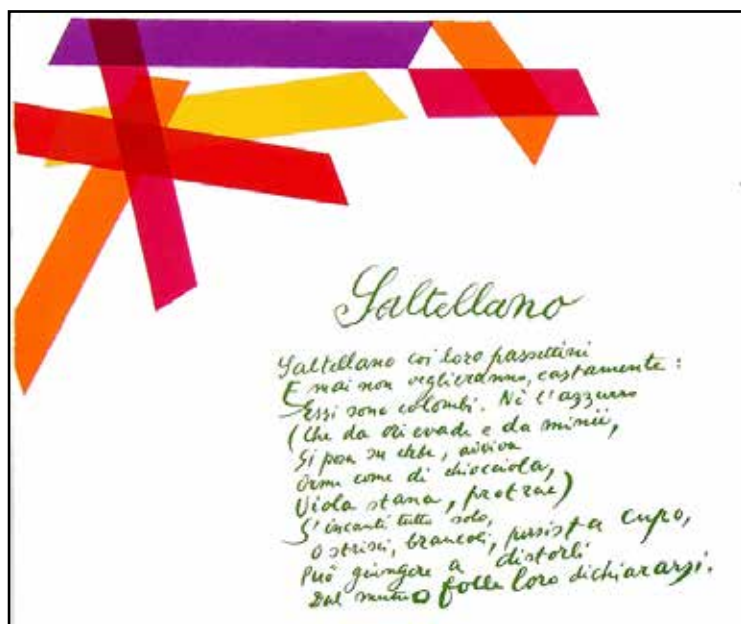 Saltellano
Saltellano coi loro passettini
E mai non veglieranno, castamente:
Essi sono colombi. Né l'azzurro
(Che da ori evade e da minii,
Si posa su erbe, avviva
Orme come di chiocciola,
Viola stana, protrae)
S'incanti tutto solo,
O strisci, brancoli, persista cupo,
Può giungere a distorli
Dal mutuo folle loro dichiararsi.